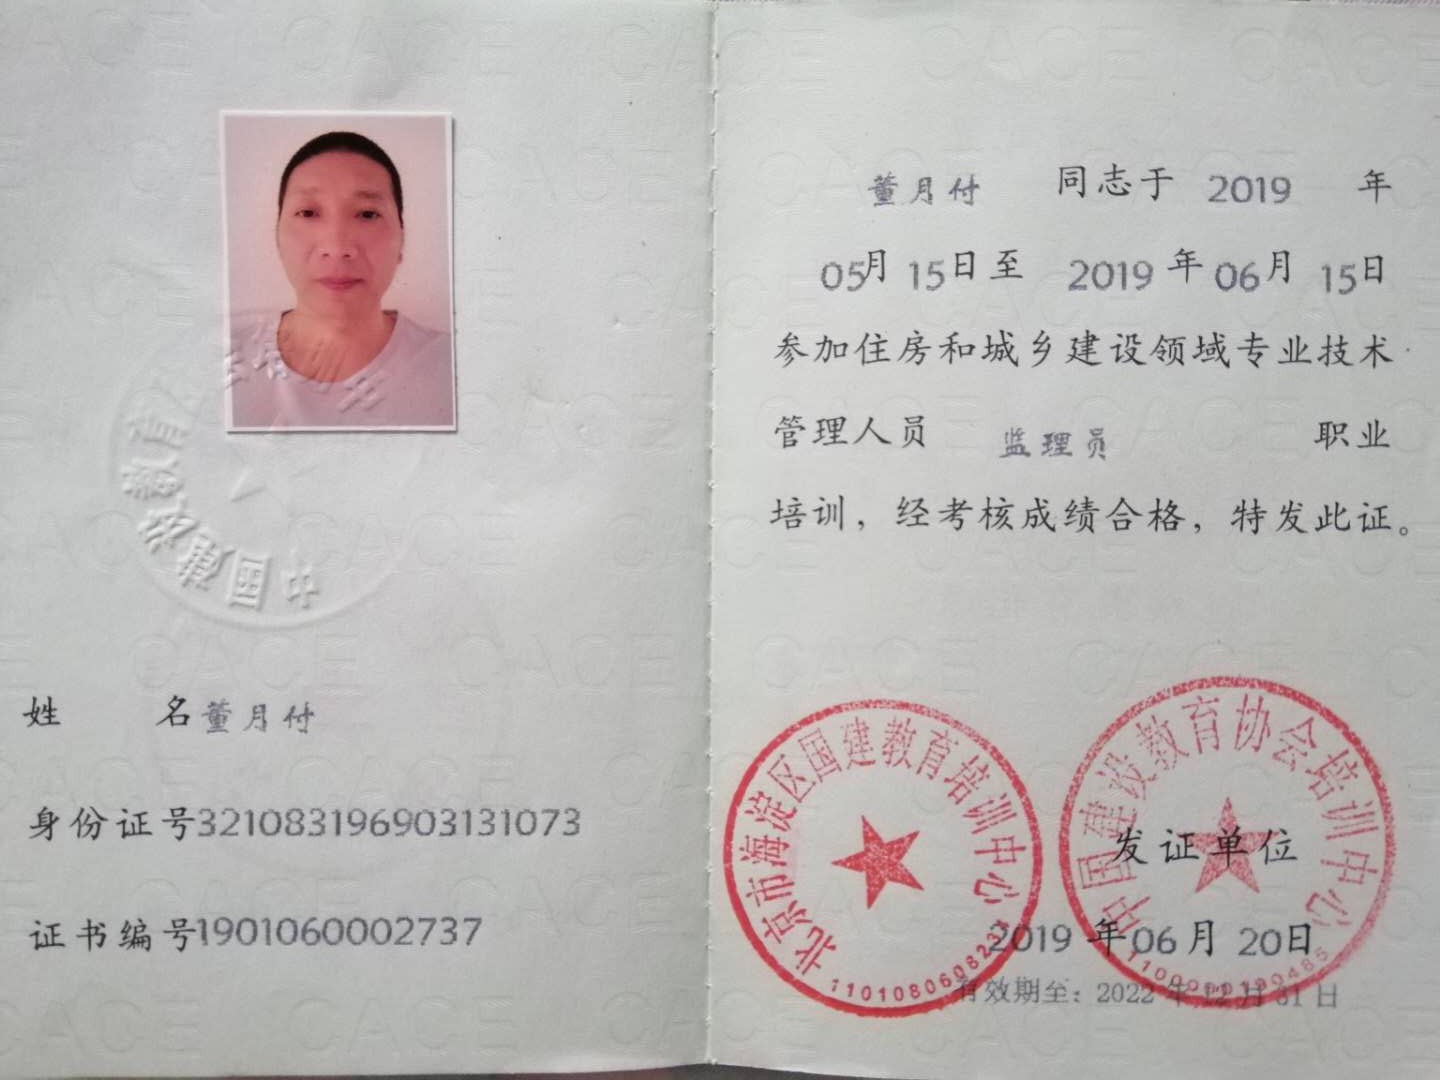 姓 名董月付
身份证号321083196903131073
证书编号1901060002737
董月付 同志于 2019 年
05月 15日至 2019 年 06月 15日
参加住房和城乡建设领域专业技术
管理人员 监理员 职业
培训，经考核成绩合格，特发此证。
北京市海淀区国建教育培训中心
中国建设教育协会培训中心
发证单位
2019 年 06 月 20日
有效期至：2022 年 12 月 31 日
中国建设教育
CACE